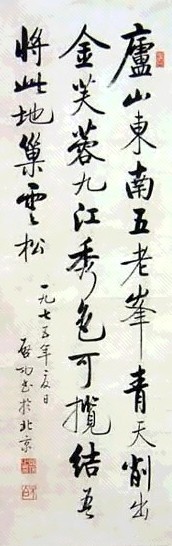 廬山東南五老峯青天削出
金芙蓉九江秀色可攬結吾
將此地巢雲松
一九七五年夏日
啓功書於北京